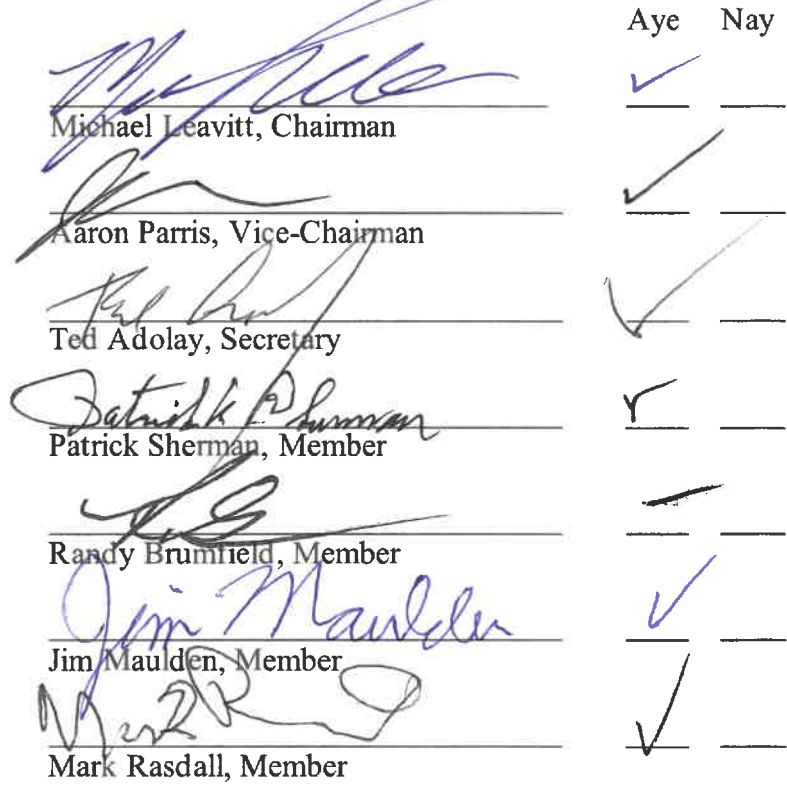 Aye Nay
Michael Leavitt, Chairman
Aaron Parris, Vice-Chairman
Ted Adolay, Secretary
Patrick Sherman
Patrick Sherman, Member
Randy Brumfield, Member
Jim Maulden
Jim Maulden, Member
Mark Rasdall, Member